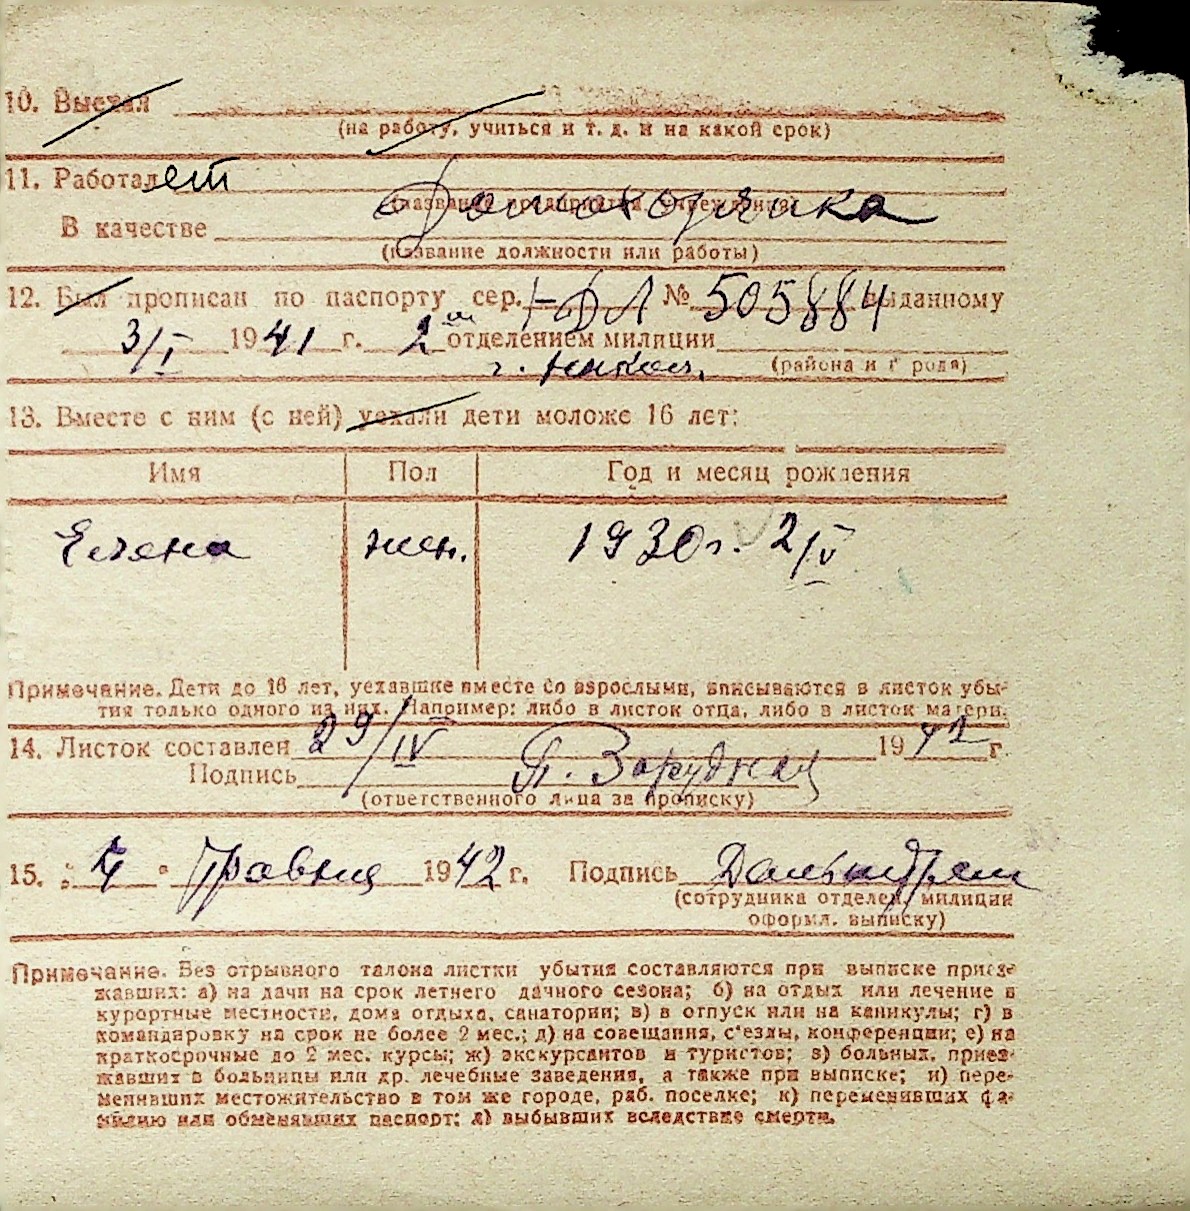 10. Выехал
(на работу, учиться и т. д. и на какой срок)
11. Работает
Домохозяйка
(название предприятия, учреждения)
В качестве
(название должности или работы)
12. Был прописан по паспорту сер. № 505884 выданному
3/I 1941 г. 2 отделением милиции
(района и города)
13. Вместе с ним (с ней) уехали дети моложе 16 лет:
Имя Пол Год и месяц рождения
Елена жен. 1930 г. 2/IV
Примечание. Дети до 16 лет, уехавшие вместе со взрослыми, вписываются в листок убы-
тия только одного из них. Например: либо в листок отца, либо в листок матери.
14. Листок составлен 29/IV 1942 г.
Подпись П. Зарудная
(ответственного лица за прописку)
15. „ 4 " Травня 1942 г. Подпись
(сотрудника отделен. милиции
оформл. выписку)
Примечание. Без отрывного талона листки убытия составляются при выписке приез-
жавших: а) на дачи на срок летнего дачного сезона; б) на отдых или лечение в
курортные местности, дома отдыха, санатории; в) в отпуск или на каникулы; г) в
командировку на срок не более 2 мес.; д) на совещания, с'езды, конференции; е) на
краткосрочные до 2 мес. курсы; ж) экскурсантов и туристов; з) больных, приез-
жавших в больницы или др. лечебные заведения, а также при выписке; и) пере-
менивших местожительство в том же городе, раб. поселке; к) переменивших фа-
милию или обменявших паспорт; л) выбывших вследствие смерти.